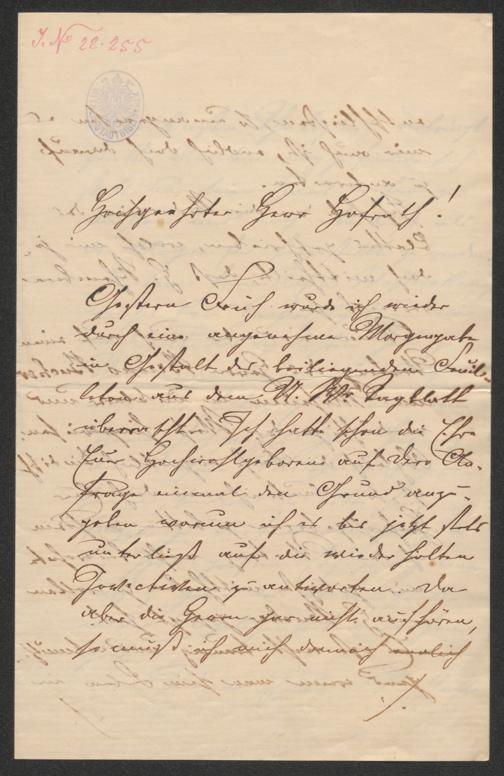 J. No 22.255
Hochgeehrter Herr Hofrath!
Gestern Früh wurde ich wieder
durch eine angenehme Morgengabe
in Gestalt des beiliegenden Feuil-
letons aus dem N. Wr. Tagblatt
überrascht. Ich hatte schon die Ehre
Euer Hochwohlgeboren auf Dero An-
frage einmal den Grund anzu-
geben warum ich es bis jetzt stets
unterließ auf die wiederholten
Invectiven zu antworten. Da
aber die Herrn gar nicht aufhören,
so muß ich mich dennoch endlich